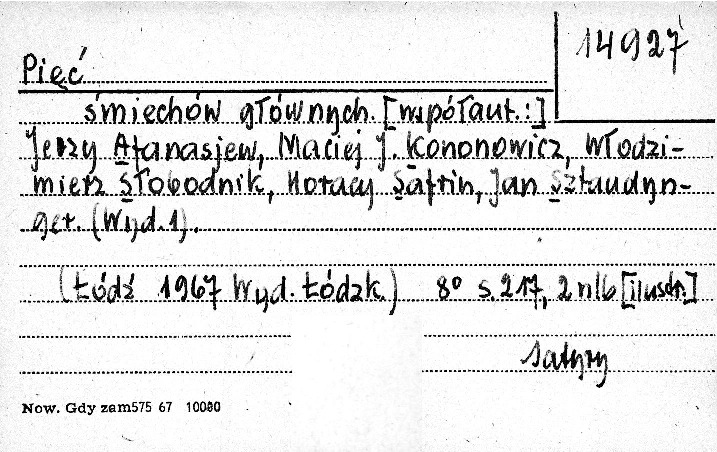 14927
Pięć
śmiechów głównych. [współaut.:]
Jerzy Afanasjew, Maciej J. Kononowicz, Włodzi-
mierz Słobodnik, Horacy Safrin, Jan Sztaudyn-
ger. (Wyd. 1).
(Łódź 1967 Wyd. Łódzk.) 8° s. 217, 2 nlb [ilustr.]
Satyry
Now. Gdy zam 575 67 10000